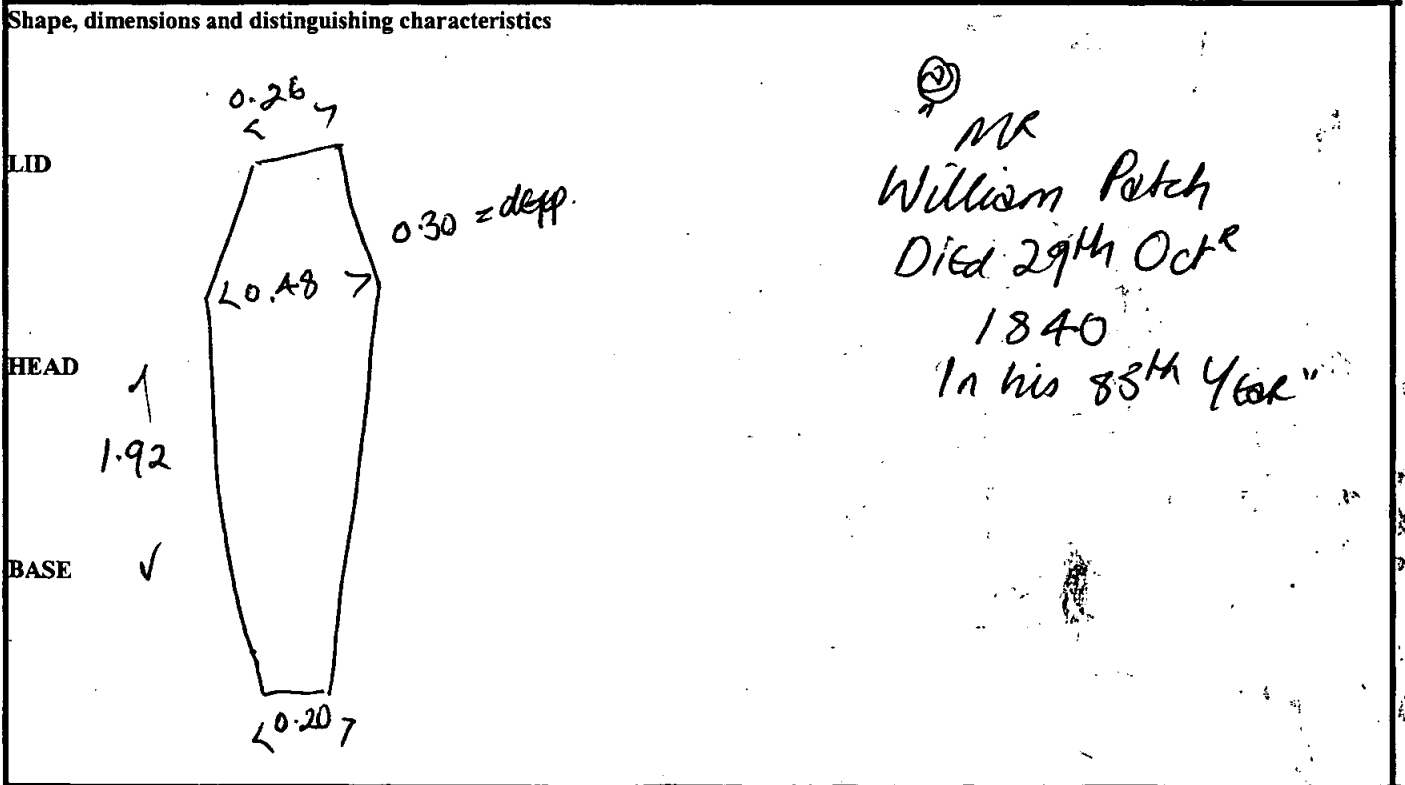 Shape, dimensions and distinguishing characteristics
0.26
LID
0.30 = depp.
<0.48>
HEAD
1.92
BASE
<0.20>
MR
William Patch
Died 29th Octr
1840
In his 83th Year"